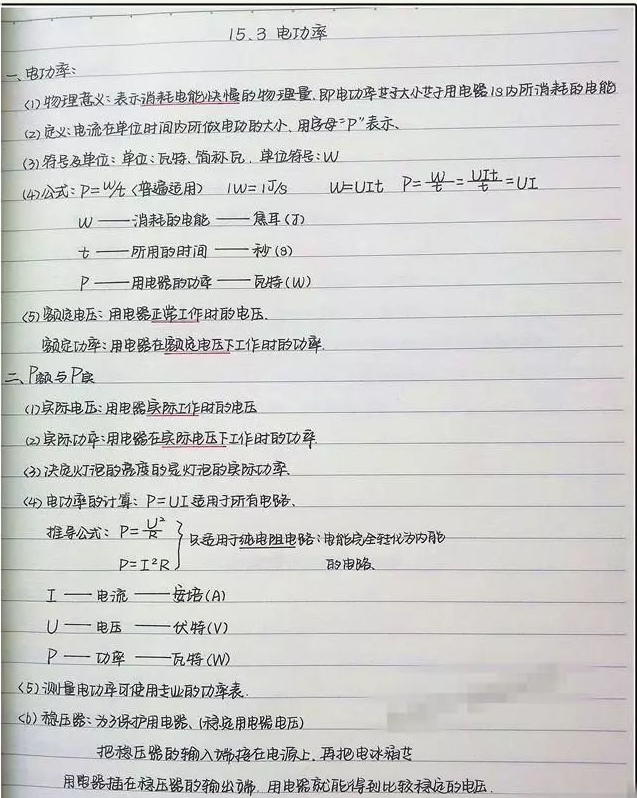 15.3 电功率
一、电功率:
(1)物理意义:表示消耗电能快慢的物理量,即电功率大小等于用电器1s内所消耗的电能
(2)定义:电流在单位时间内所做电功的大小,用字母“P”表示、
(3)符号及单位:单位:瓦特、简称瓦、单位符号:W
(4)公式:P=W/t(普遍适用) 1W=1J/s W=UIt P=W/t=UIt/t=UI
W——消耗的电能——焦耳(J)
t——所用的时间——秒(s)
P——用电器的功率——瓦特(W)
(5)额定电压:用电器正常工作时的电压.
额定功率:用电器在额定电压下工作时的功率.
二、P额与P实
(1)实际电压:用电器实际工作时的电压
(2)实际功率:用电器在实际电压下工作时的功率
(3)决定灯泡的亮度的是灯泡的实际功率、
(4)电功率的计算:P=UI适用于所有电路、
推导公式:P=U²/R
P=I²R } 只适用于纯电阻电路:电能完全转化为内能
的电路、
I——电流——安培(A)
U——电压——伏特(V)
P——功率——瓦特(W)
(5)测量电功率可使用专业的功率表.
(6)稳压器:为了保护用电器、(稳定用电器电压)
把稳压器的输入端接在电源上,再把电冰箱等
用电器插在稳压器的输出端,用电器就能得到比较稳定的电压.